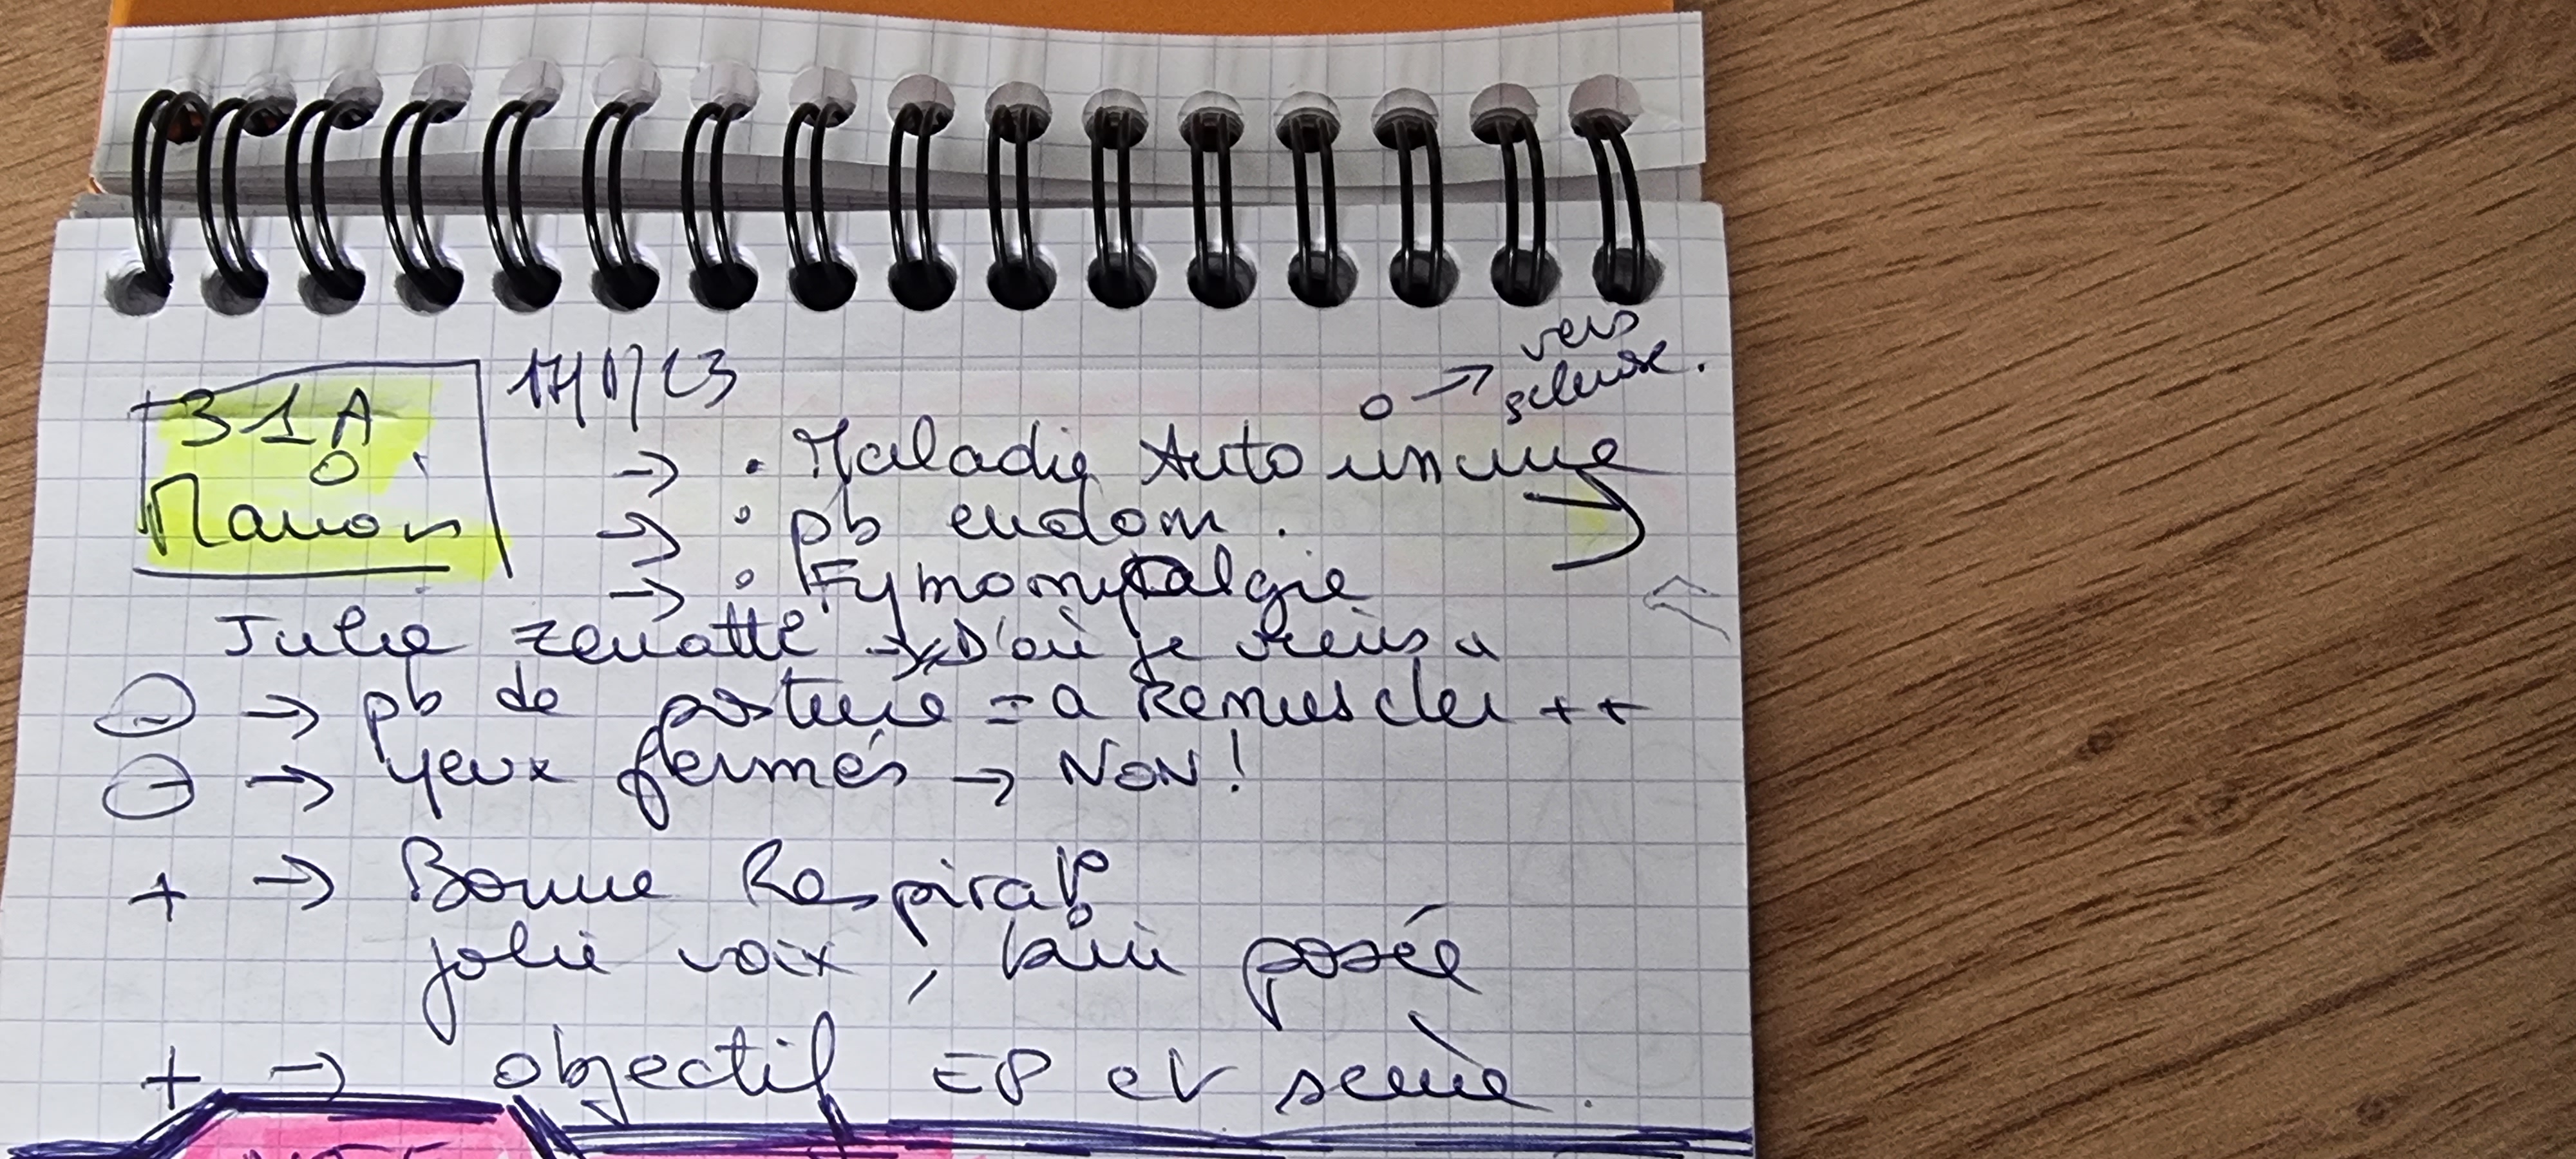 vers
o → sclérose.
31A 17/1/23
Manon
→ • Maladie Auto imune
→ • pb endom.
→ • Fymomyalgie
Julie zenatti → "D'où je viens"
⊖ → pb de posture = a Remuscler ++
⊖ → Yeux fermés → NON!
+ → Bonne Respirat°
jolie voix, bien posée
+ → objectif EP et scène.